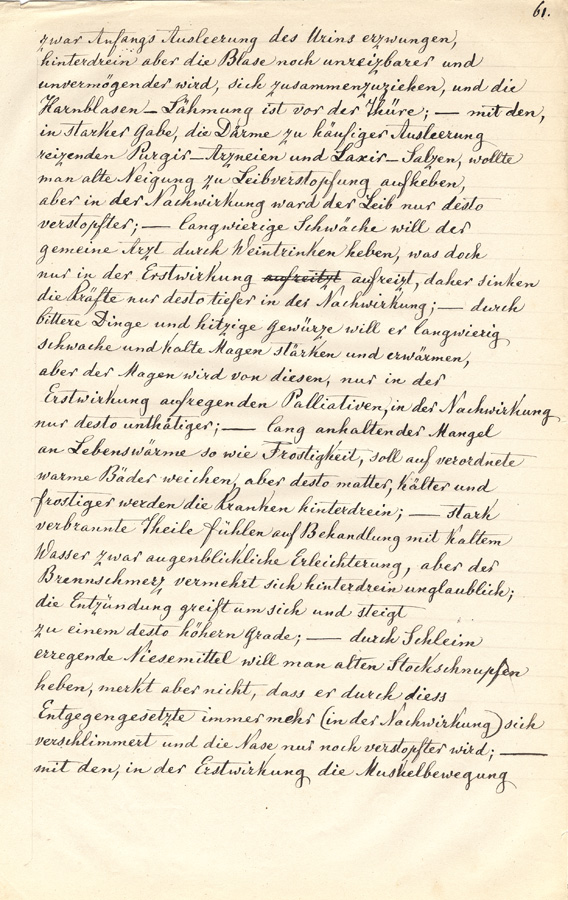 61.
zwar Anfangs Ausleerung des Urins erzwungen,
hinterdrein aber die Blase noch unreizbarer und
unvermögender wird, sich zusammenzuziehen, und die
Harnblasen-Lähmung ist vor der Thüre; — mit den,
in starker Gabe, die Därme zu häufiger Ausleerung
reizenden Purgir-Arzneien und Laxir-Salzen, wollte
man alte Neigung zu Leibverstopfung aufheben,
aber in der Nachwirkung ward der Leib nur desto
verstopfter; — langwierige Schwäche will der
gemeine Arzt durch Weintrinken heben, was doch
nur in der Erstwirkung aufreitzt aufreizt, daher sinken
die Kräfte nur desto tiefer in der Nachwirkung; — durch
bittere Dinge und hitzige Gewürze will er langwierig
schwache und kalte Magen stärken und erwärmen,
aber der Magen wird von diesen, nur in der
Erstwirkung aufregenden Palliativen, in der Nachwirkung
nur desto unthätiger; — lang anhaltender Mangel
an Lebenswärme so wie Frostigkeit, soll auf verordnete
warme Bäder weichen, aber desto matter, kälter und
frostiger werden die Kranken hinterdrein; — stark
verbrannte Theile fühlen auf Behandlung mit kaltem
Wasser zwar augenblickliche Erleichterung, aber der
Brennschmerz vermehrt sich hinterdrein unglaublich;
die Entzündung greift um sich und steigt
zu einem desto höhern Grade; — durch Schleim
erregende Niesemittel will man alten Stockschnupfen
heben, merkt aber nicht, dass er durch diess
Entgegengesetzte immer mehr (in der Nachwirkung) sich
verschlimmert und die Nase nur noch verstopfter wird; —
mit den, in der Erstwirkung die Muskelbewegung